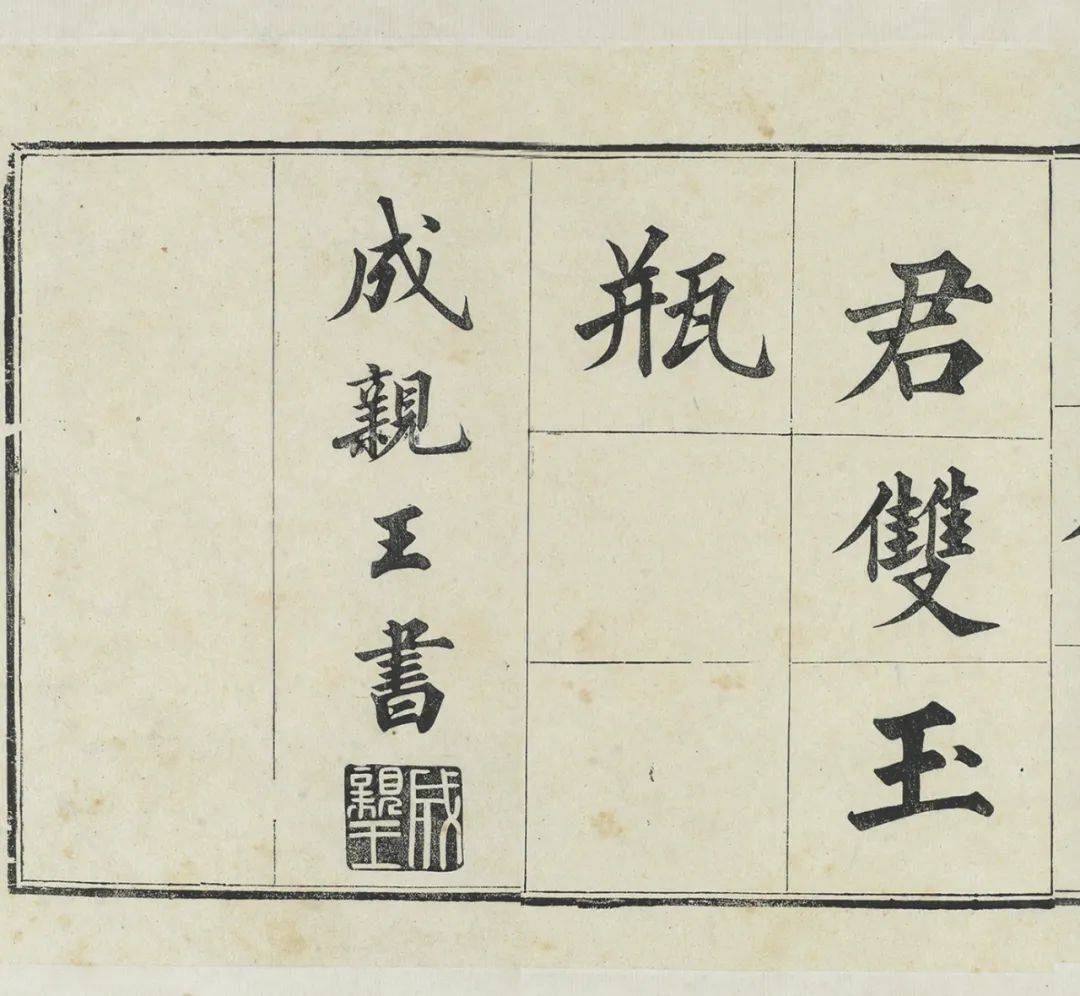 君雙玉
瓶
成親王書
成親王